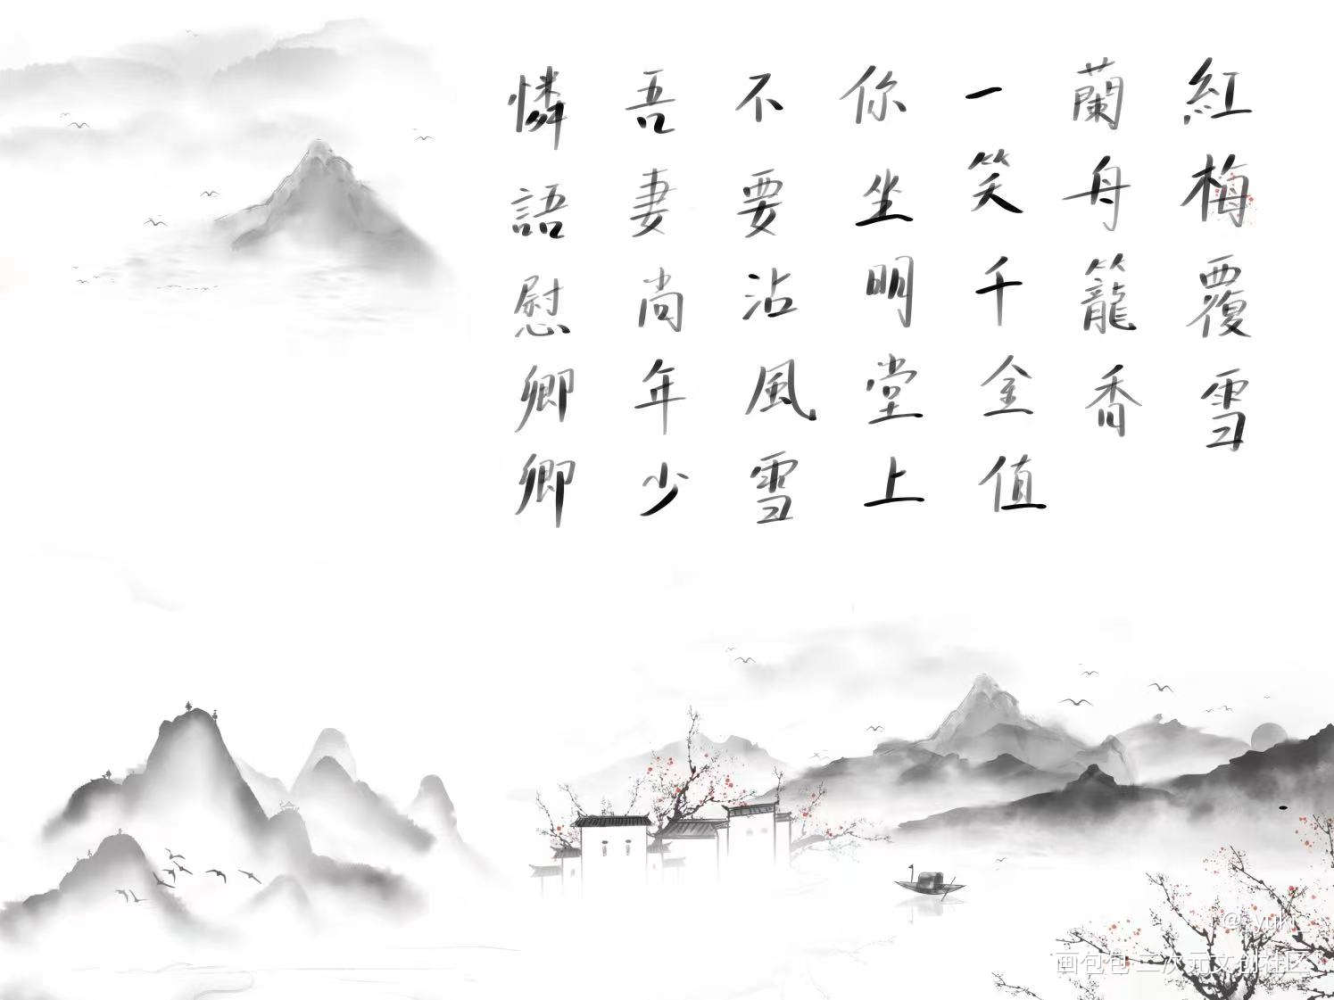 紅梅覆雪
蘭舟籠香
一笑千金值
你坐明堂上
不要沾風雪
吾妻尚年少
憐語慰卿卿
画包包 二次元文创社区